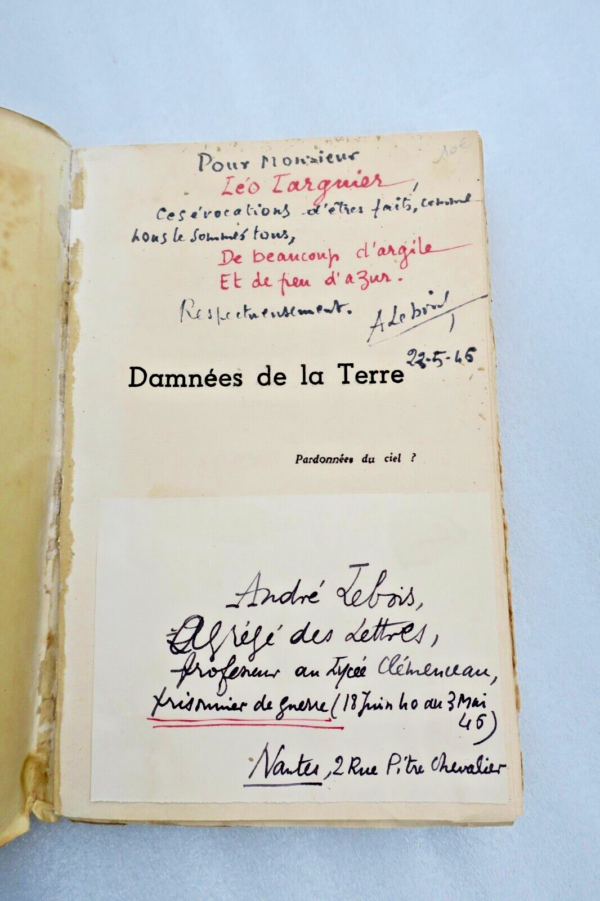 10€
Pour Monsieur
Léo Larguier,
ces évocations d'êtres faits, comme
nous le sommes tous,
De beaucoup d'argile
Et de peu d'azur.
Respectueusement.
A Lebois,
22-5-46
Damnées de la Terre
Pardonnées du ciel ?
André Lebois,
Agrégé des Lettres,
professeur au Lycée Clémenceau,
prisonnier de guerre (18 Juin 40 au 3 Mai
45)
Nantes, 2 Rue Pitre Chevalier